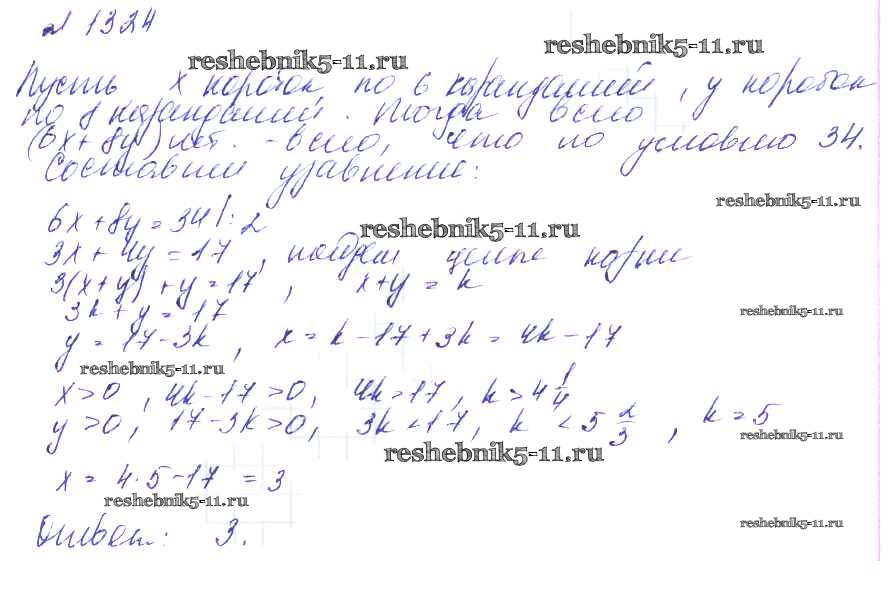 № 1324
reshebnik5-11.ru
reshebnik5-11.ru
Пусть x коробок по 6 карандашей, y коробок
по 8 карандашей. Тогда всего
(6x+8y) шт. - всего, что по условию 34.
Составим уравнение:
reshebnik5-11.ru
6x+8y=34 |:2
reshebnik5-11.ru
3x+4y=17, найдем целые корни
3(x+y)+y=17, x+y=k
3k+y=17
reshebnik5-11.ru
y=17-3k, x=k-17+3k=4k-17
reshebnik5-11.ru
x>0, 4k-17>0, 4k>17, k>4 1/4
y>0, 17-3k>0, 3k<17, k<5 2/3, k=5
reshebnik5-11.ru
reshebnik5-11.ru
x=4·5-17=3
reshebnik5-11.ru
Ответ: 3.
reshebnik5-11.ru